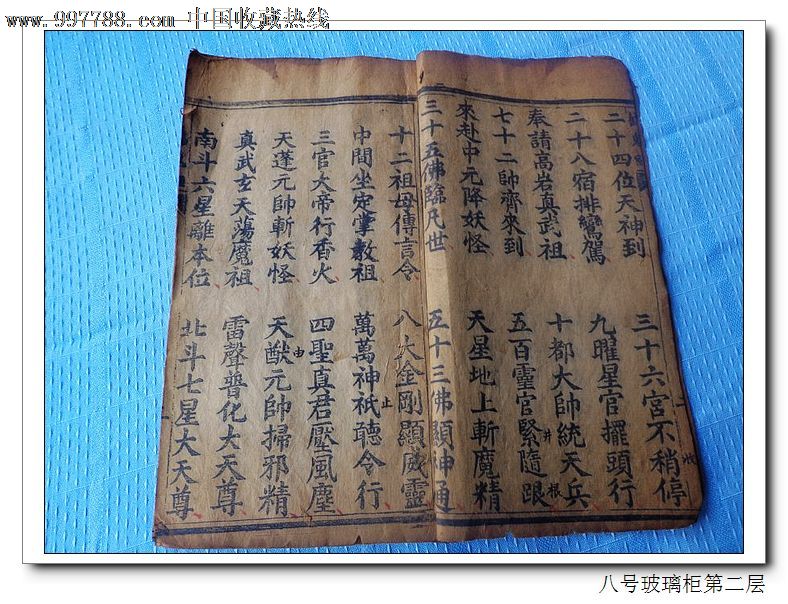 www.997788.com 中国收藏热线
二十四位天神到 三十六宮不稍停
二十八宿排鸞駕 九曜星官擺頭行
奉請高岩真武祖 十都大帥統天兵
七十二帥齊來到 五百靈官緊隨跟
來赴中元降妖怪 天星地上斬魔精
三十五佛臨凡世 五十三佛顯神通
十二祖母傳言令 八大金剛顯威靈
中間坐定掌教祖 萬萬神祇聽令行
三官大帝行香火 四聖真君壓風塵
天蓬元帥斬妖怪 天猷元帥掃邪精
真武玄天蕩魔祖 雷聲普化大天尊
南斗六星離本位 北斗七星大天尊
井
根
止
由
八号玻璃柜第二层